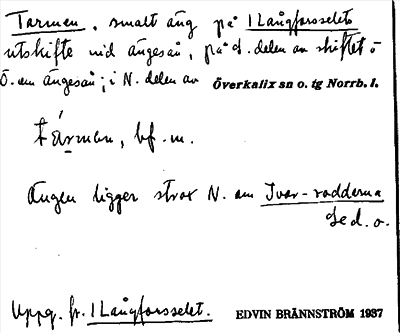 Tarmen, smalt äng på 1 Långforsselets
utskifte vid Ängesån, på d. delen av skiftet o
Ö. om Ängesån; i N. delen av Överkalix sn o. tg Norrb. l.
tármen, bf. m.
Ängen ligger strax N. om Ivar-rödderna
Se d. o.
Uppg. fr. 1 Långforsselet. EDVIN BRÄNNSTRÖM 1937